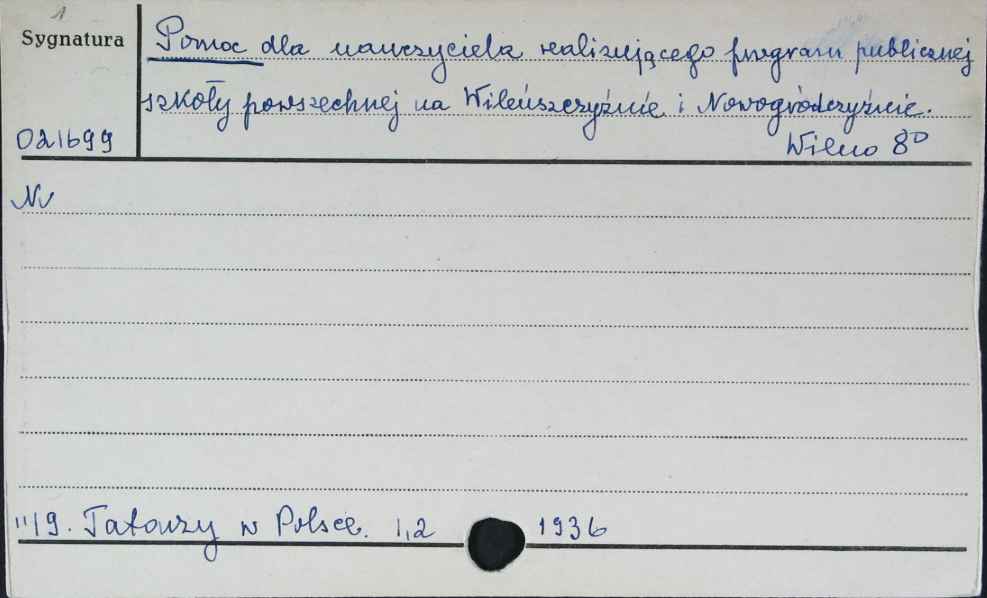 1
Sygnatura
Pomoc dla nauczyciela realizującego program publicznej
szkoły powszechnej na Wileńszczyźnie i Nowogródczyźnie.
021699
Wilno 8°
Nr
"/9. Tatarzy w Polsce. 1,2 1936